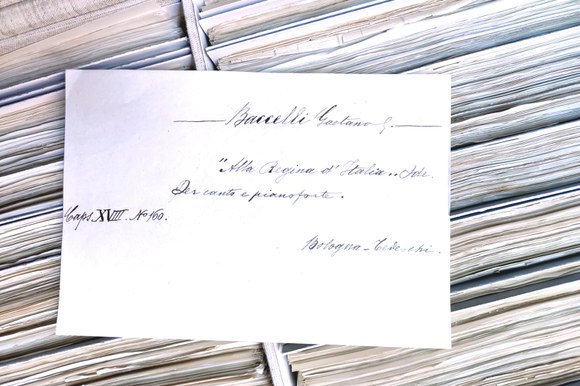 Baccelli Gaetano G.
"Alla Regina d'Italia„ Ode.
Per canto e pianoforte.
Caps. XVIII. No 160.
Bologna - Tedeschi.